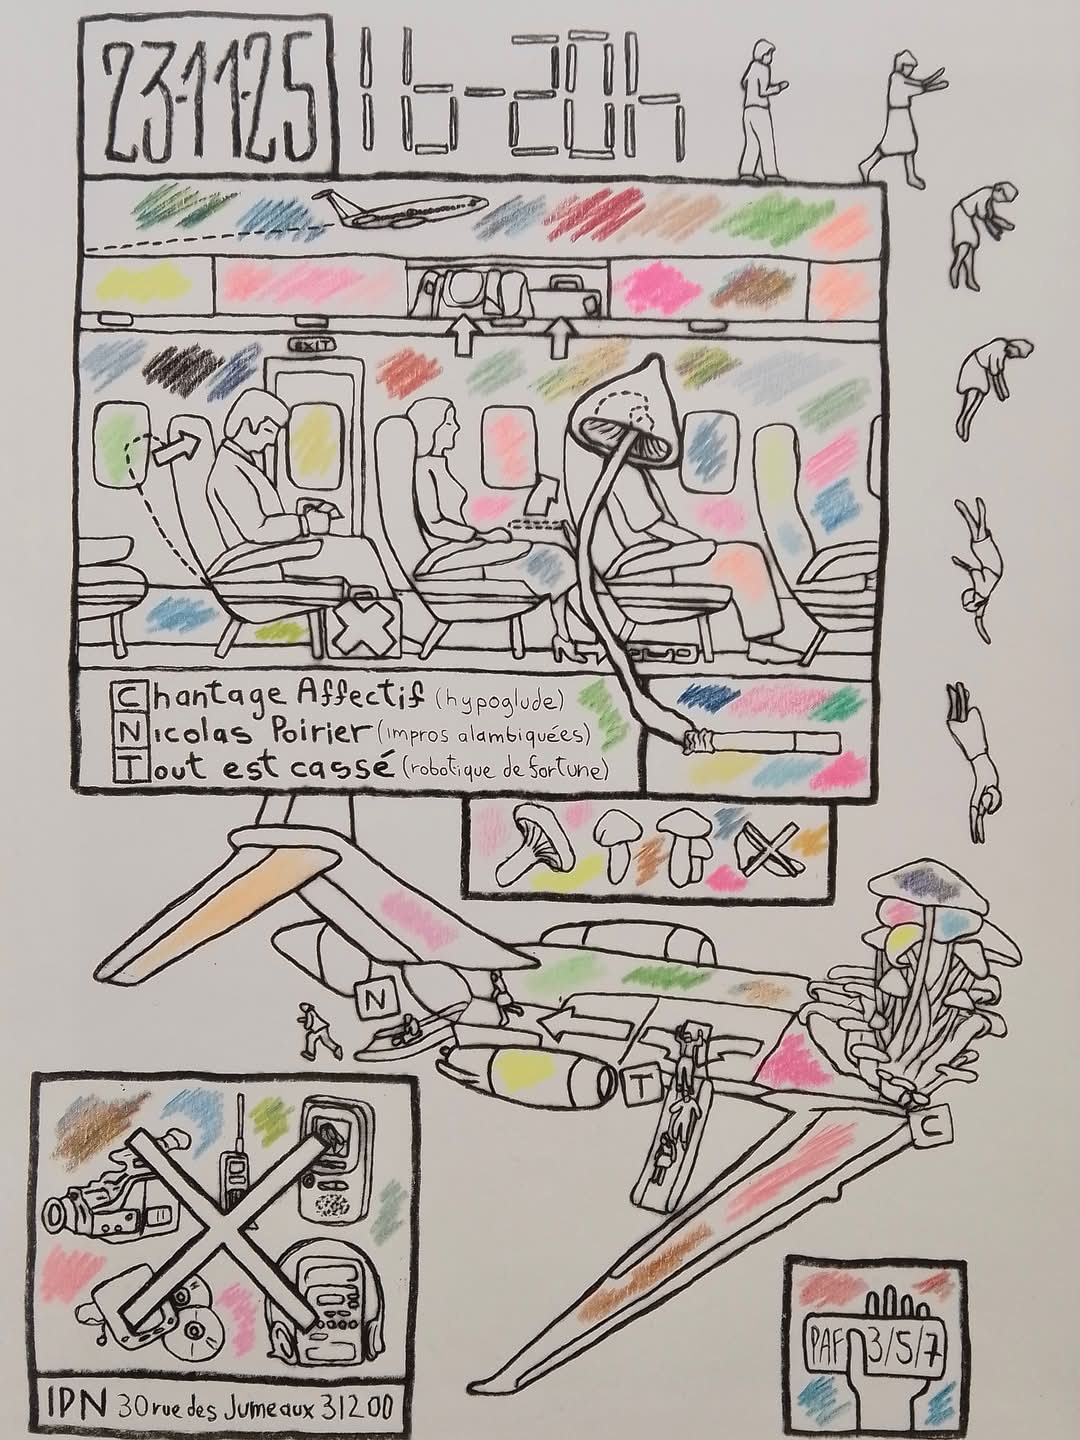 23-11-25
16-20h
EXIT
Chantage Affectif (hypoglude)
Nicolas Poirier (impros alambiquées)
Tout est cassé (robotique de fortune)
N
T
C
IPN 30 rue des Jumeaux 31200
PAF 3/5/7